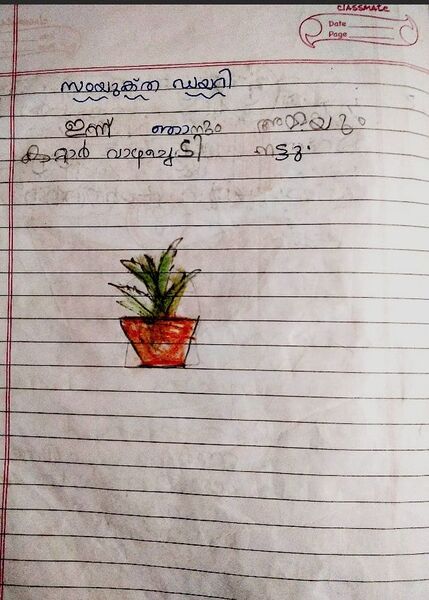 CLASSMATE
Date
Page
സംയുക്ത ഡയറി
ഇന്ന് ഞാനും അമ്മയും
കറ്റാർ വാഴച്ചെടി നട്ടു.